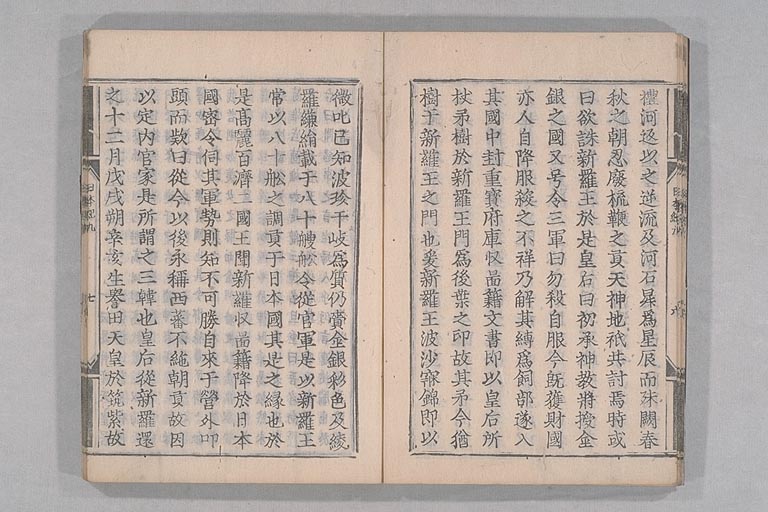 禮河返以之逆流及河石昇爲星辰而殊闕春
秋之朝忍廢梳鞭之貢天神地祇共討焉時或
曰欲誅新羅王於是皇后曰初承神教將授金
銀之國又号令三軍曰勿殺自服今旣獲財國
亦人自降服殺之不祥乃解其縛爲飼部遂入
其國中封重寶府庫収啚籍文書即以皇后所
杖矛樹於新羅王門爲後葉之印故其矛今猶
樹于新羅王之門也爰新羅王波沙寐錦即以
微叱已知波珍干岐爲質仍賷金銀彩色及綾
羅縑絹載于八十艘舩令從官軍是以新羅王
常以八十舩之調貢于日本國其是之縁也於
是髙麗百濟二國王聞新羅収啚籍降於日本
國密令伺其軍勢則知不可勝自來于營外叩
頭而欵曰從今以後永稱西蕃不絶朝貢故因
以定内官家是所謂之三韓也皇后從新羅還
之十二月戊戌朔辛亥生譽田天皇於筑紫故
日本紀九
七
六